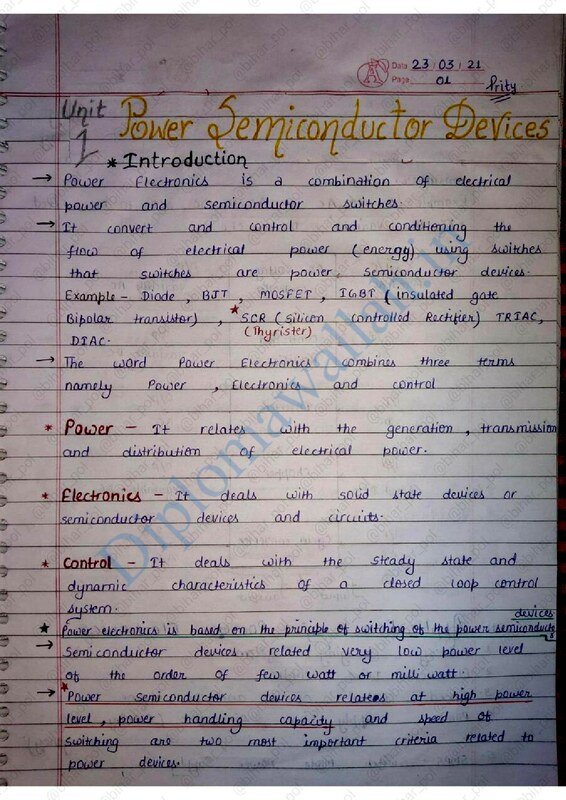 Date 23/03/21
Page 01
Prity
Unit 1
Power Semiconductor Devices
* Introduction
→ Power Electronics is a combination of electrical
power and semiconductor switches.
→ It convert and control and conditioning the
flow of electrical power (energy) using switches
that switches are power semiconductor devices.
Example - Diode, BJT, MOSFET, IGBT (insulated gate
Bipolar transistor), *SCR (Silicon controlled Rectifier) TRIAC,
(Thyrister)
DIAC.
→ The word Power Electronics combines three terms
namely Power, Electronics and control
* Power - It relates with the generation, transmission
and distribution of electrical power.
* Electronics - It deals with solid state devices or
semiconductor devices and circuits.
* Control - It deals with the steady state and
dynamic characteristics of a closed loop control
system.
devices
* Power electronics is based on the principle of switching of the power semiconductor
→ Semiconductor devices related very low power level
of the order of few watt or milli watt.
*
→ Power semiconductor devices relates at high power
level, power handling capacity and speed of
switching are two most important criteria related to
power devices.
Diplomawallah.in
@bihar_pol